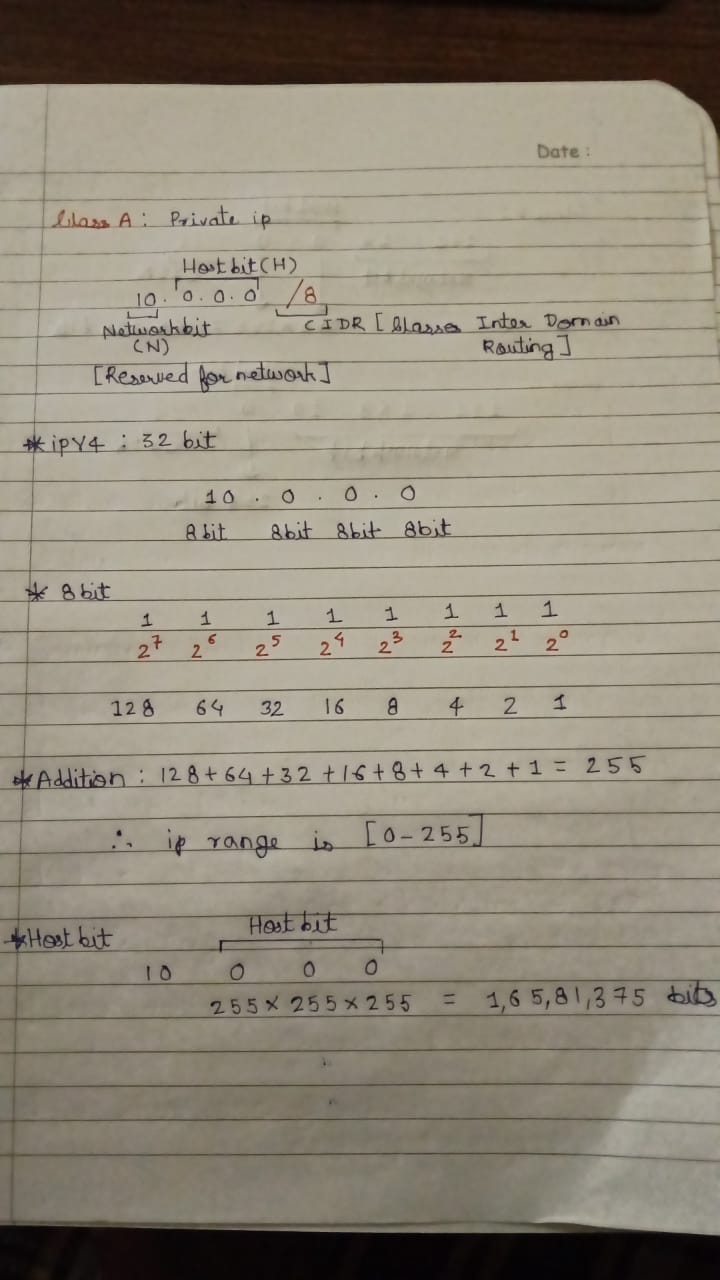 Date :
Class A : Private ip
Host bit (H)
10. 0. 0. 0 /8
Network bit CIDR [ Classes Inter Domain
(N) Routing ]
[Reserved for network]
* ipv4 : 32 bit
10 . 0 . 0 . 0
8bit 8bit 8bit 8bit
* 8bit
1 1 1 1 1 1 1 1
2⁷ 2⁶ 2⁵ 2⁴ 2³ 2² 2¹ 2⁰
128 64 32 16 8 4 2 1
* Addition : 128+64+32+16+8+4+2+1 = 255
∴ ip range is [0-255]
Host bit
* Host bit
10 0 0 0
255 x 255 x 255 = 1,65,81,375 bits